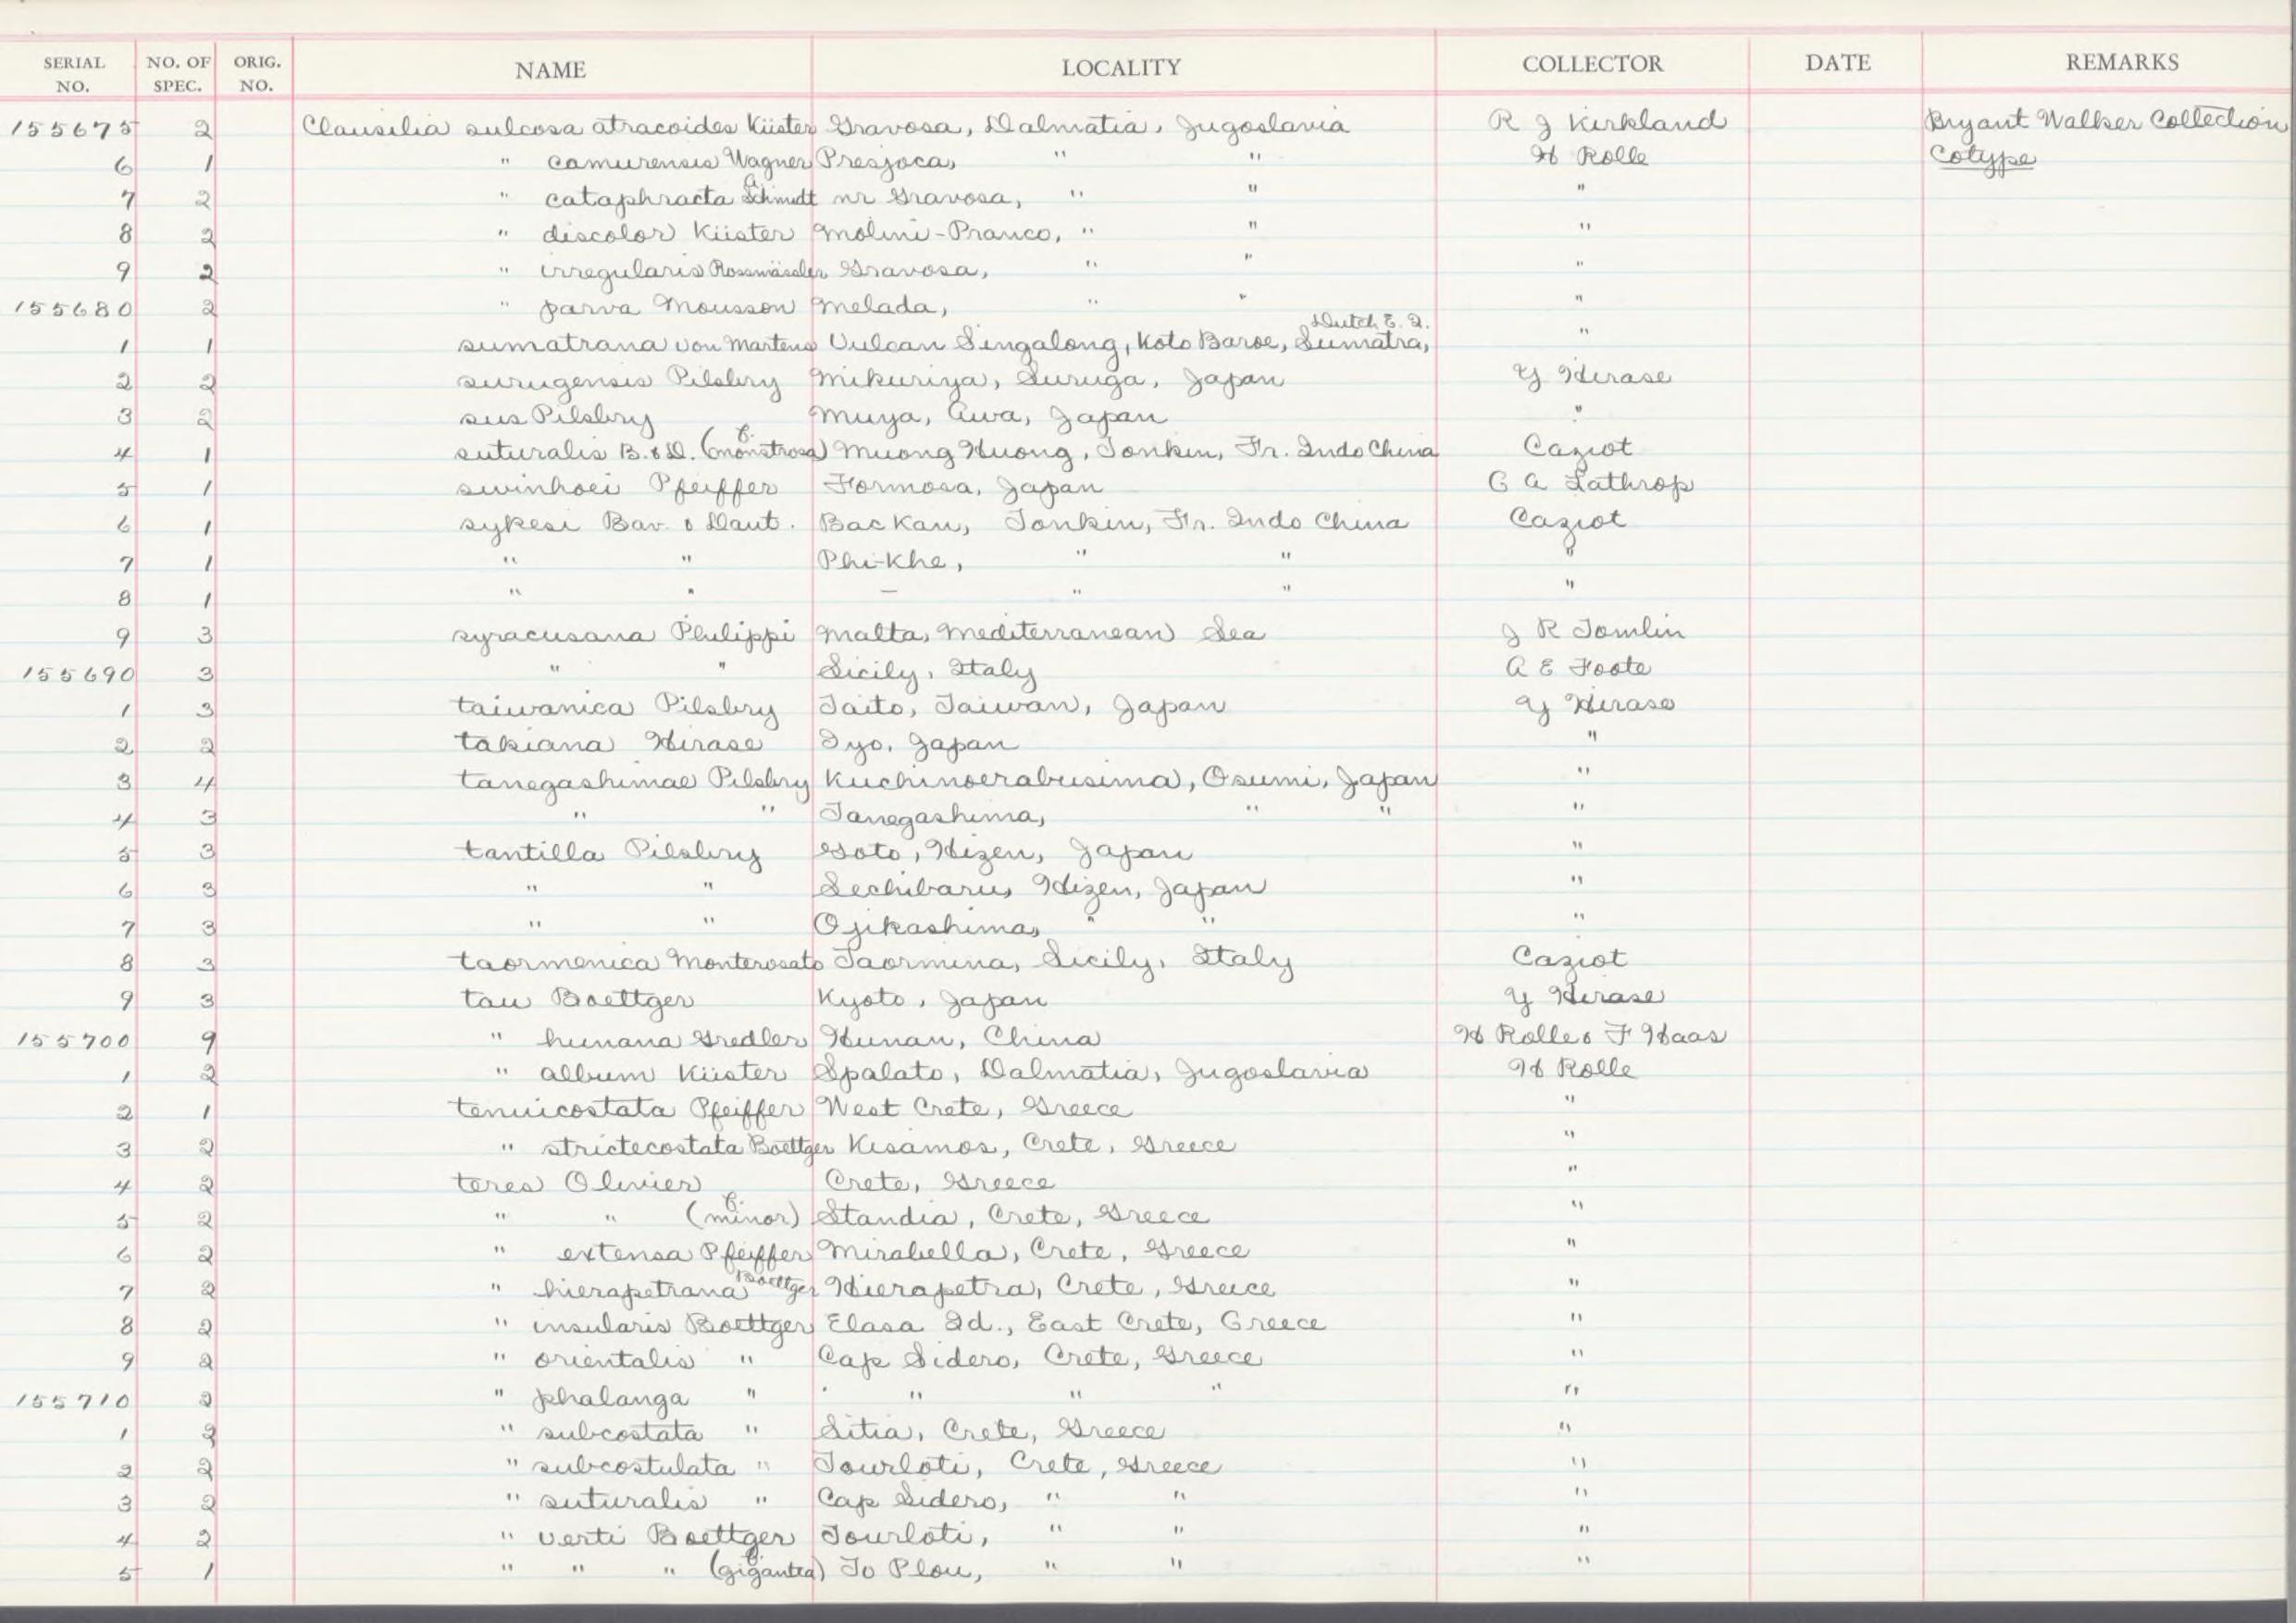 SERIAL NO. NO. OF SPEC. ORIG. NO. NAME LOCALITY COLLECTOR DATE REMARKS
155675 2 Clausilia sulcosa atracoides Küster Gravosa, Dalmatia, Jugoslavia R J Kirkland Bryant Walker Collection
6 1 " camurensis Wagner Presjoca, " " H Rolle Cotype
7 2 " cataphracta A Schmidt nr Gravosa, " " "
8 2 " discolor Küster Molini-Pranco, " " "
9 2 " irregularis Rossmässler Gravosa, " " "
155680 2 " parva Mousson Melada, " " "
1 1 sumatrana von Martens Vulcan Singalong, Koto Baroe, Sumatra, Dutch E. I. "
2 2 surugensis Pilsbry Mikuriya, Suruga, Japan Y Hirase
3 2 sus Pilsbry Muya, Awa, Japan "
4 1 suturalis B. & D. (f. monstrosa) Muong Huong, Tonkin, Fr. Indo China Caziot
5 1 swinhoei Pfeiffer Formosa, Japan G A Lathrop
6 1 sykesi Bav. & Daut. Bac Kan, Tonkin, Fr. Indo China Caziot
7 1 " " Phi-Khe, " " "
8 1 " " — " " "
9 3 syracusana Philippi Malta, Mediterranean Sea J R Tomlin
155690 3 " " Sicily, Italy A E Foote
1 3 taiwanica Pilsbry Taito, Taiwan, Japan Y Hirase
2 2 takiana Hirase Iyo, Japan "
3 4 tanegashimae Pilsbry Kuchinoerabusima, Osumi, Japan "
4 3 " " Tanegashima, " " "
5 3 tantilla Pilsbry Goto, Hizen, Japan "
6 3 " " Sechibaru, Hizen, Japan "
7 3 " " Ojikashima, " " "
8 3 taormenica Monterosato Taormina, Sicily, Italy Caziot
9 3 tau Boettger Kyoto, Japan Y Hirase
155700 9 " hunana Gredler Hunan, China H Rolle & F Haas
1 2 " album Küster Spalato, Dalmatia, Jugoslavia H Rolle
2 1 tenuicostata Pfeiffer West Crete, Greece "
3 2 " strictecostata Boettger Kisamos, Crete, Greece "
4 2 teres Olivier Crete, Greece "
5 2 " " (f. minor) Standia, Crete, Greece "
6 2 " extensa Pfeiffer Mirabella, Crete, Greece "
7 2 " hierapetrana Boettger Hierapetra, Crete, Greece "
8 2 " insularis Boettger Elasa Id., East Crete, Greece "
9 2 " orientalis " Cap Sidero, Crete, Greece "
155710 2 " phalanga " " " " "
1 2 " subcostata " Sitia, Crete, Greece "
2 2 " subcostulata " Tourloti, Crete, Greece "
3 2 " suturalis " Cap Sidero, " " "
4 2 " verti Boettger Tourloti, " " "
5 1 " " " (f. gigantea) To Plou, " " "